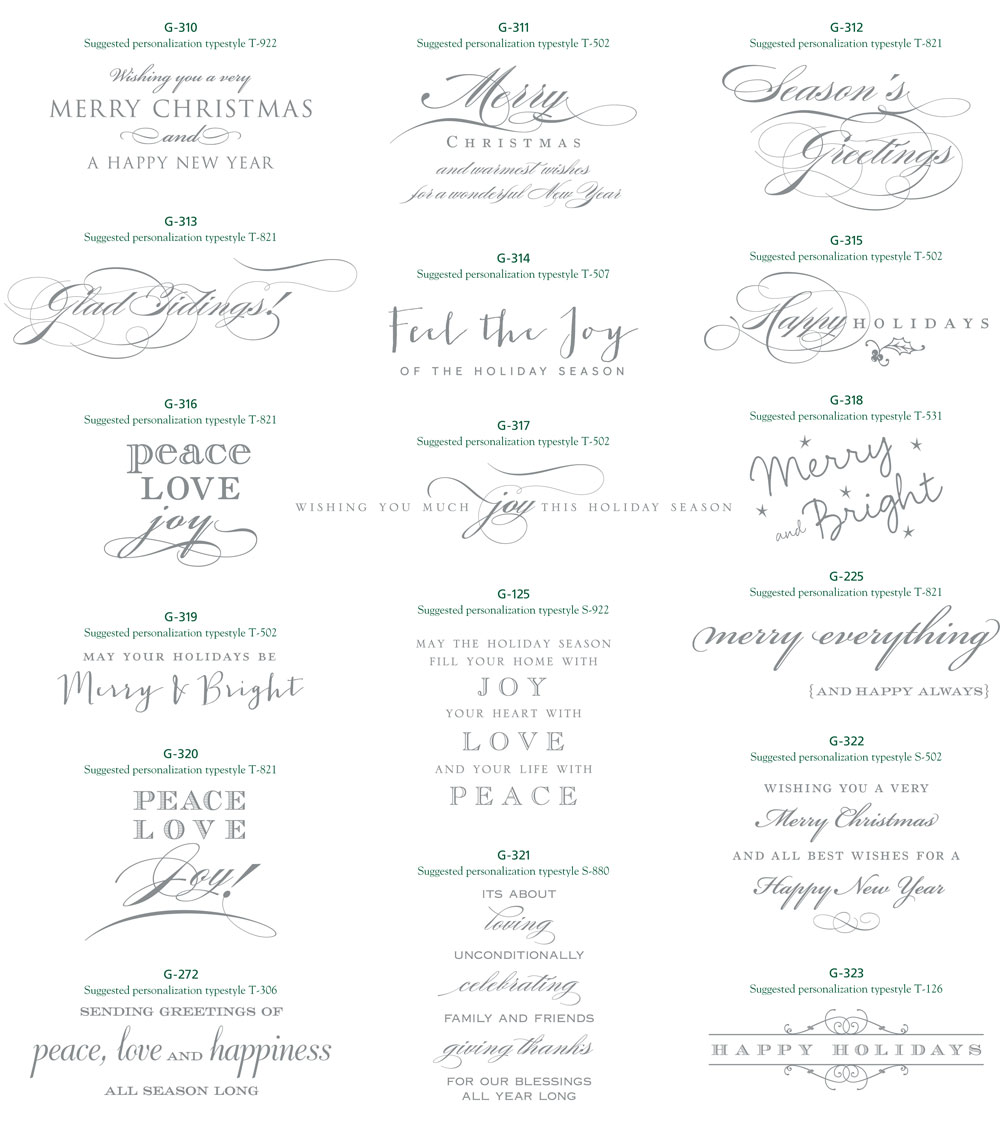 G-310
Suggested personalization typestyle T-922
Wishing you a very
MERRY CHRISTMAS
and
A HAPPY NEW YEAR
G-311
Suggested personalization typestyle T-502
Merry
CHRISTMAS
and warmest wishes
for a wonderful New Year
G-312
Suggested personalization typestyle T-821
Season's
Greetings
G-313
Suggested personalization typestyle T-821
Glad Tidings!
G-314
Suggested personalization typestyle T-507
Feel the Joy
OF THE HOLIDAY SEASON
G-315
Suggested personalization typestyle T-502
Happy HOLIDAYS
G-316
Suggested personalization typestyle T-821
peace
LOVE
joy
G-317
Suggested personalization typestyle T-502
WISHING YOU MUCH joy THIS HOLIDAY SEASON
G-318
Suggested personalization typestyle T-531
Merry
and Bright
G-319
Suggested personalization typestyle T-502
MAY YOUR HOLIDAYS BE
Merry & Bright
G-125
Suggested personalization typestyle S-922
MAY THE HOLIDAY SEASON
FILL YOUR HOME WITH
JOY
YOUR HEART WITH
LOVE
AND YOUR LIFE WITH
PEACE
G-225
Suggested personalization typestyle T-821
merry everything
{AND HAPPY ALWAYS}
G-320
Suggested personalization typestyle T-821
PEACE
LOVE
Joy!
G-321
Suggested personalization typestyle S-880
ITS ABOUT
loving
UNCONDITIONALLY
celebrating
FAMILY AND FRIENDS
giving thanks
FOR OUR BLESSINGS
ALL YEAR LONG
G-322
Suggested personalization typestyle S-502
WISHING YOU A VERY
Merry Christmas
AND ALL BEST WISHES FOR A
Happy New Year
G-272
Suggested personalization typestyle T-306
SENDING GREETINGS OF
peace, love AND happiness
ALL SEASON LONG
G-323
Suggested personalization typestyle T-126
HAPPY HOLIDAYS